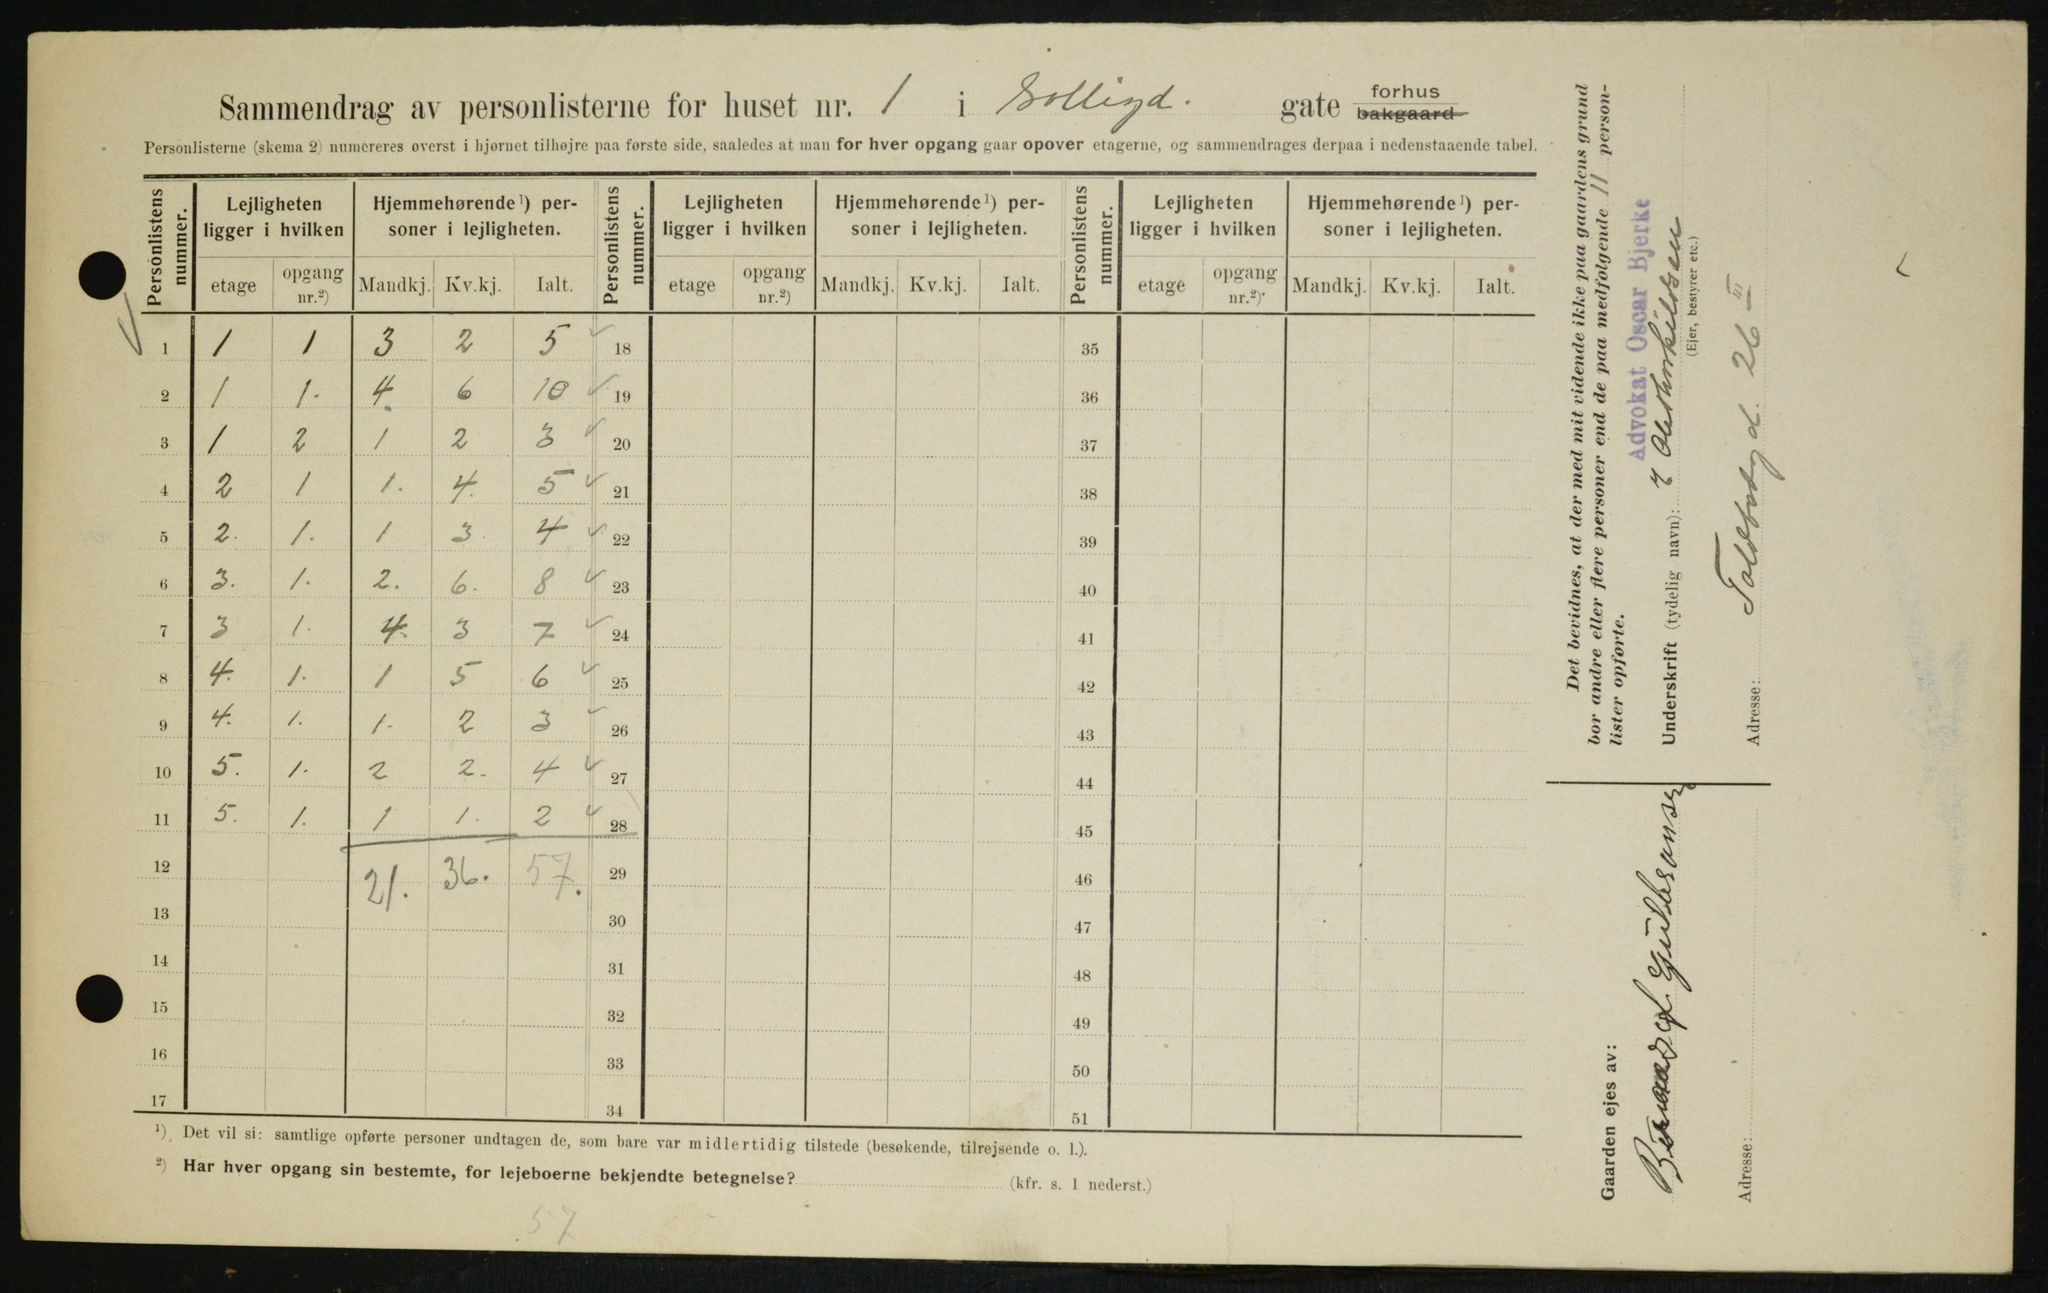 Sammendrag av personlisterne for huset nr. 1 i gate forhus
bakgaard
Personlisterne (skema 2) numereres øverst i hjørnet tilhøjre paa første side, saaledes at man for hver opgang gaar opover etagerne, og sammendrages derpaa i nedenstaaende tabel.
Personlistens nummer. Lejligheten ligger i hvilken Hjemmehørende ¹) personer i lejligheten. Personlistens nummer. Lejligheten ligger i hvilken Hjemmehørende ¹) personer i lejligheten. Personlistens nummer. Lejligheten ligger i hvilken Hjemmehørende ¹) personer i lejligheten.
etage opgang nr.²) Mandkj. Kv.kj. Ialt. etage opgang nr.²) Mandkj. Kv.kj. Ialt. etage opgang nr.²) Mandkj. Kv.kj. Ialt.
1 1 1 3 2 5 18 35
2 1 1. 4. 6 10 19 36
3 1 2 1 2 3 20 37
4 2 1 1. 4. 5 21 38
5 2. 1. 1 3. 4 22 39
6 3. 1. 2. 6. 8 23 40
7 3 1. 4. 3 7 24 41
8 4. 1. 1 5 6 25 42
9 4. 1. 1. 2 3 26 43
10 5. 1. 2 2. 4 27 44
11 5. 1. 1 1. 2 28 45
12 21. 36. 57. 29 46
13 30 47
14 31 48
15 32 49
16 33 50
17 34 51
¹) Det vil si: samtlige opførte personer undtagen de, som bare var midlertidig tilstede (besøkende, tilrejsende o. l.).
²) Har hver opgang sin bestemte, for lejeboerne bekjendte betegnelse? (kfr. s. 1 nederst.)
57
Det bevidnes, at der med mit vidende ikke paa gaardens grund
bor andre eller flere personer end de paa medfølgende 11 person-
lister opførte.
Advokat Oscar Bjerke
Underskrift (tydelig navn):
(Ejer, bestyrer etc.)
Adresse: Toldbodgd. 26 III
Gaarden ejes av:
Gulbransen
Adresse: